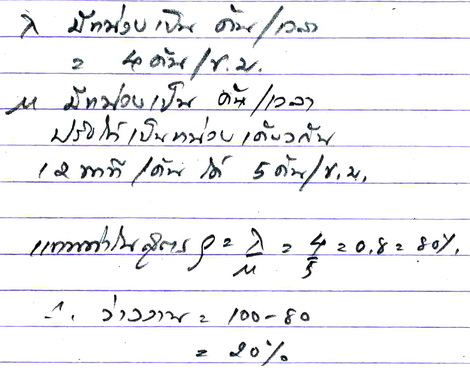 λ มีหน่วยเป็น คัน/เวลา
= 4 คัน/ช.ม.
μ มีหน่วยเป็น คัน/เวลา
ปรับให้เป็นหน่วยเดียวกัน
12 นาที/คัน ได้ 5 คัน/ช.ม.
แทนค่าในสูตร ρ = λ/μ = 4/5 = 0.8 = 80%
∴ ว่างงาน = 100-80
= 20%